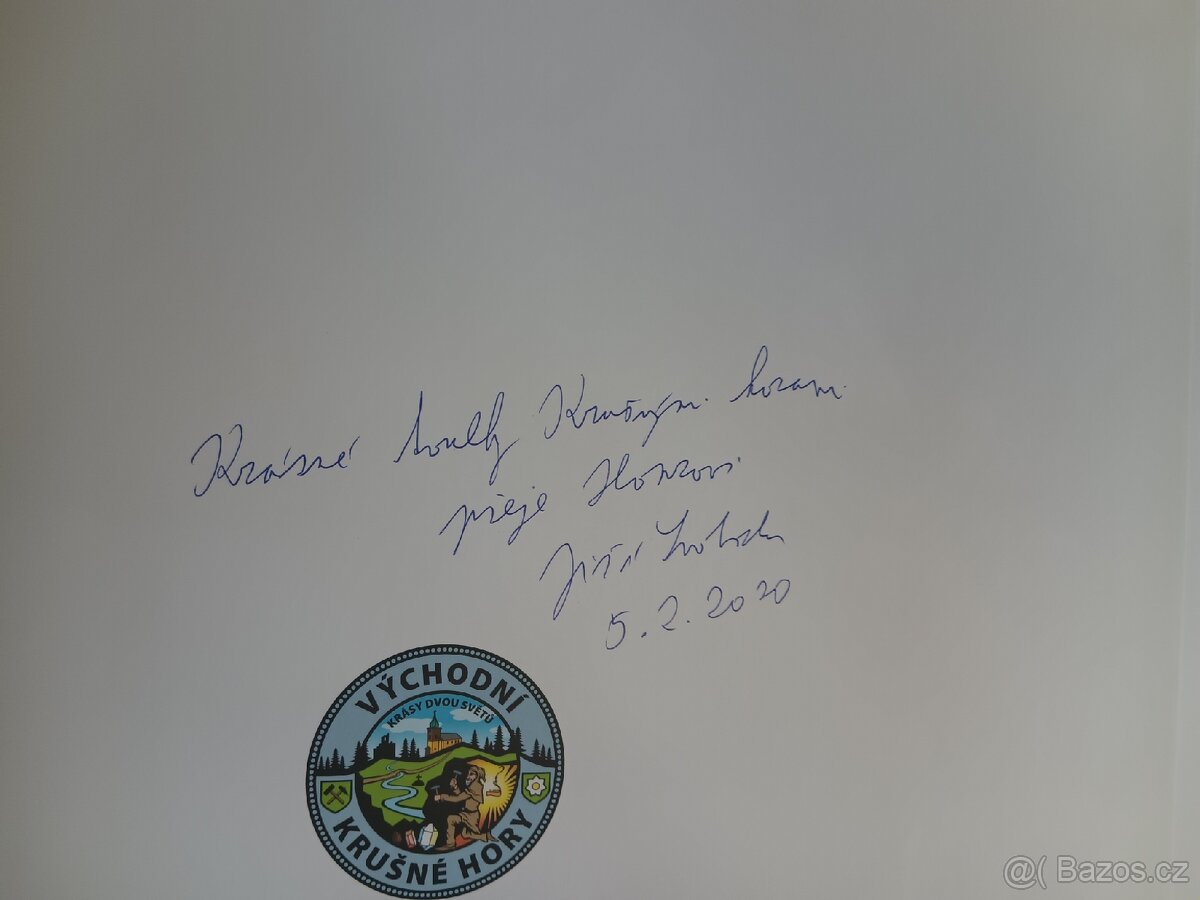 Krásné toulky Krušnými horami
přeje Honzovi
Jiří Svoboda
5.2.2020
VÝCHODNÍ
KRÁSY DVOU SVĚTŮ
KRUŠNÉ HORY
@( Bazos.cz